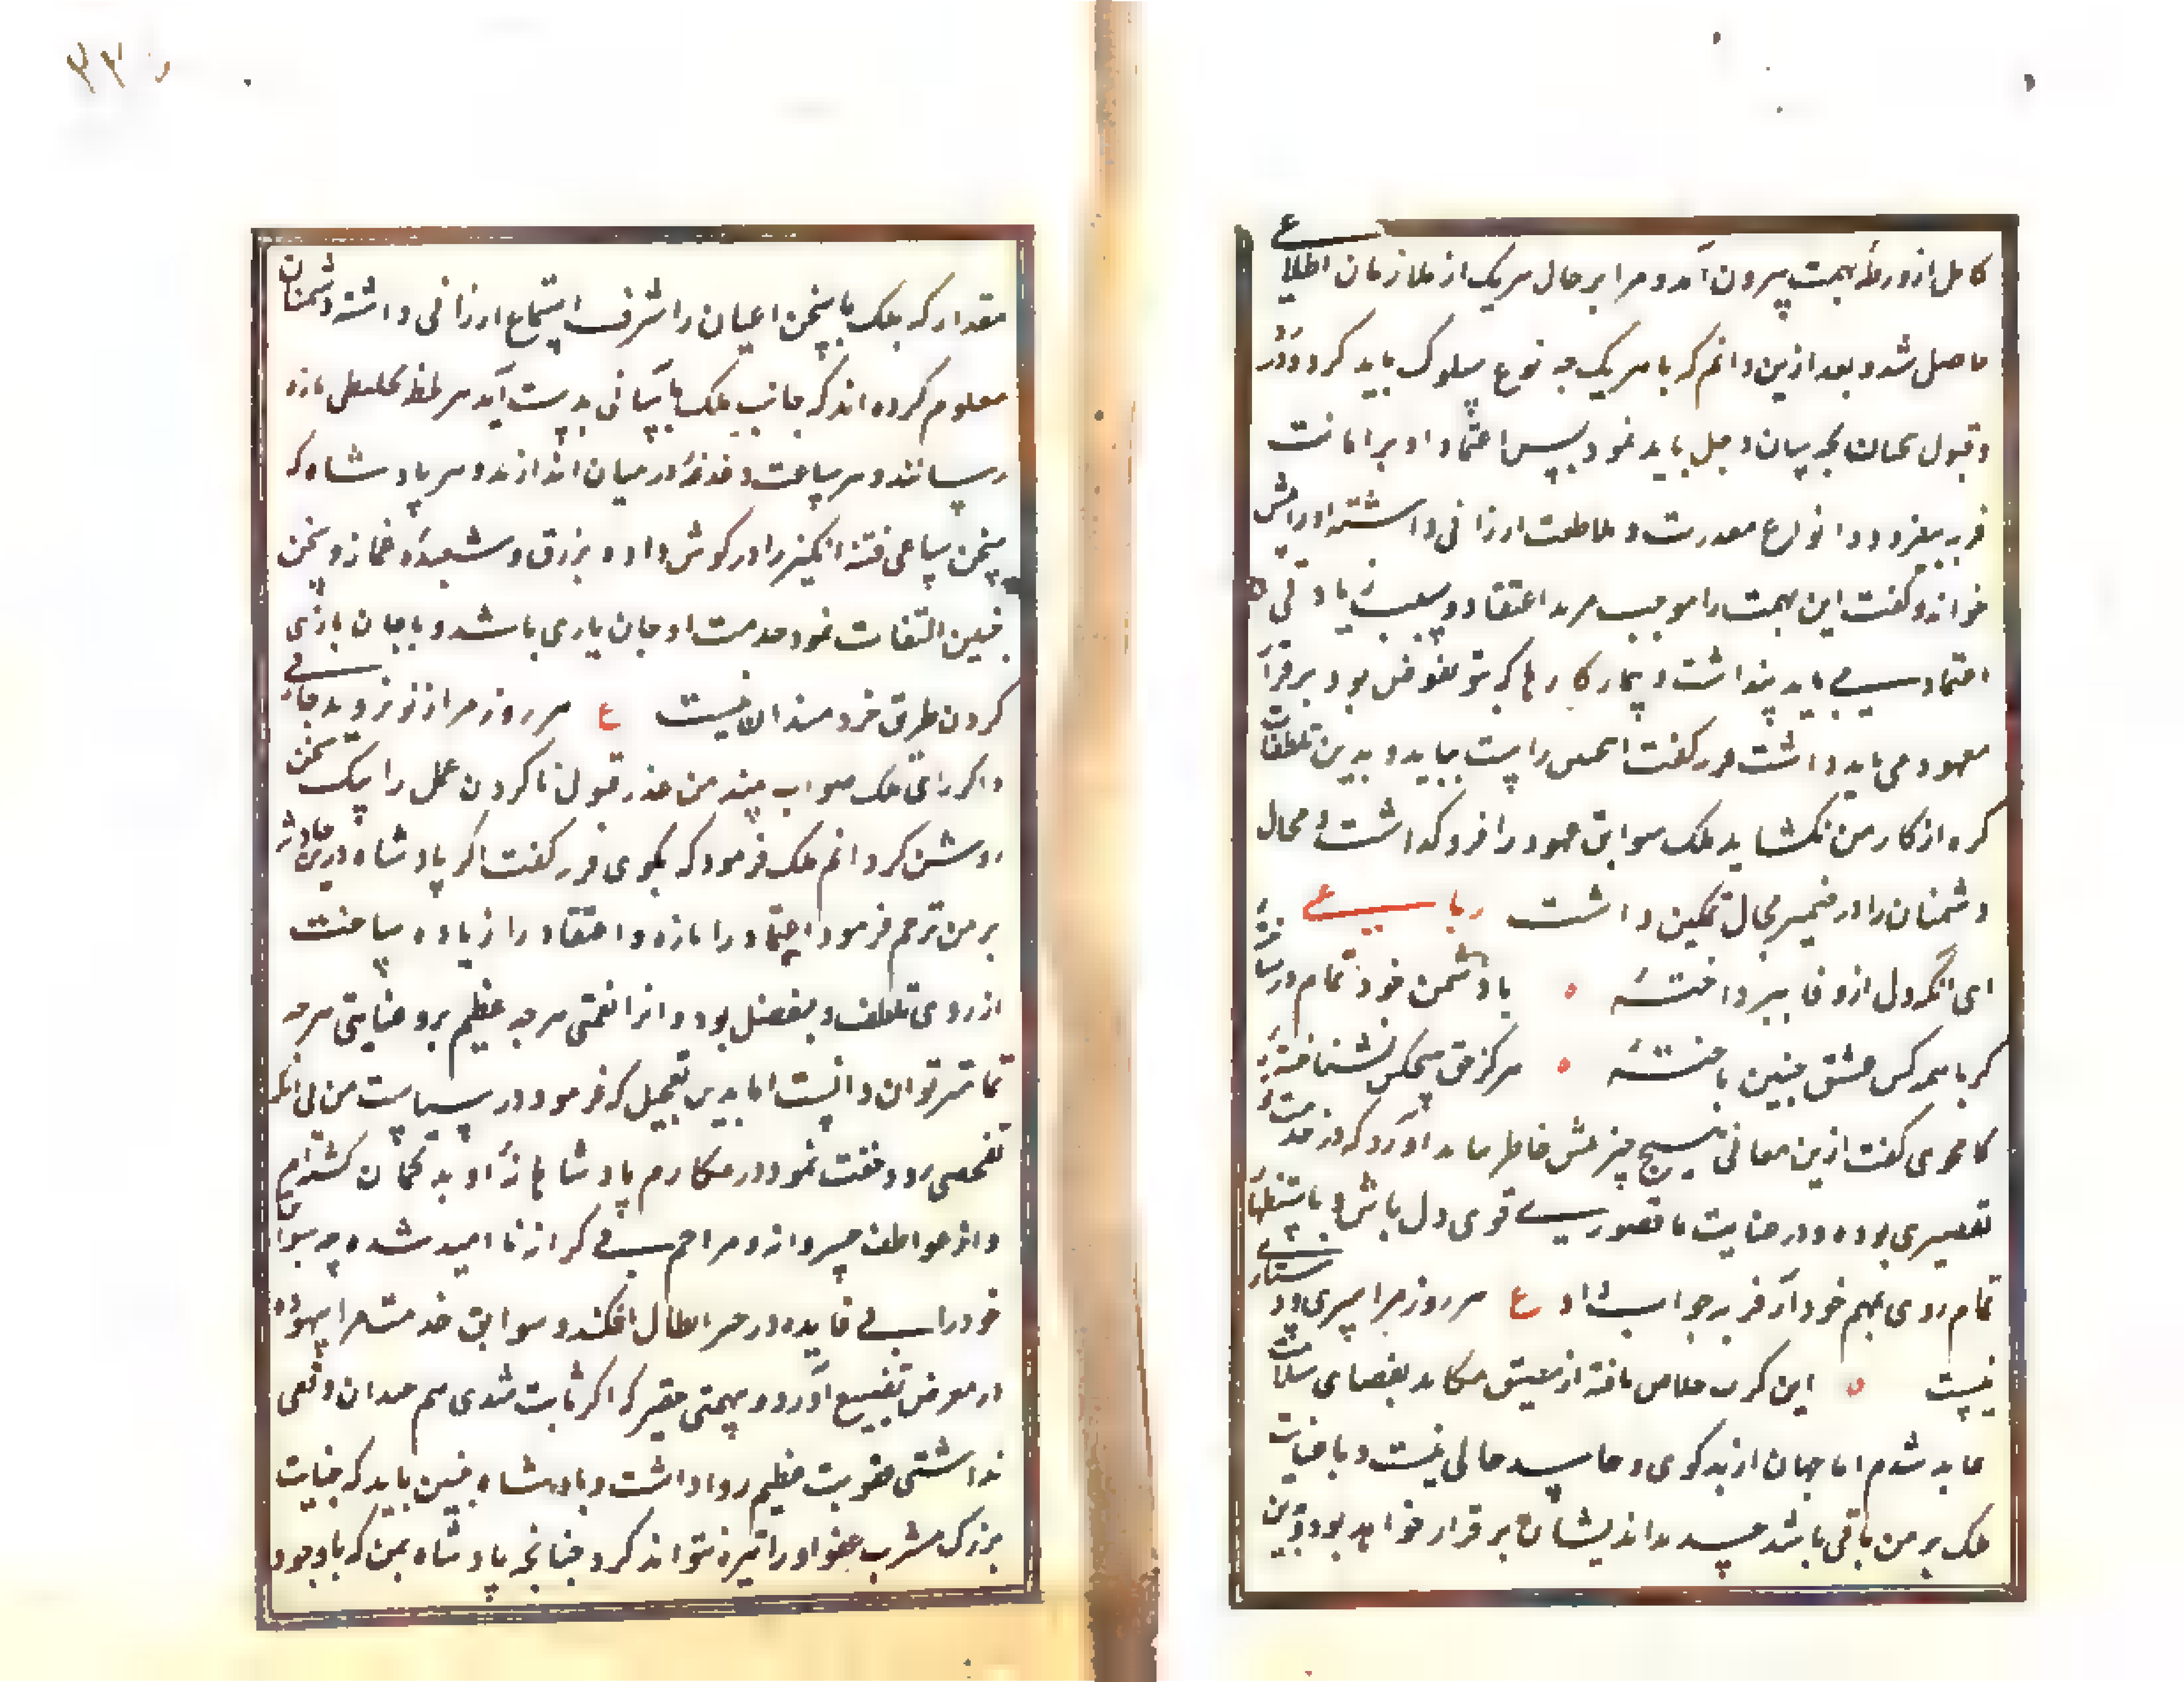 کامل از ورطه تهمت بیرون آمد و مرا بر حال هریک از ملازمان اطلاعی
حاصل شد و بعد ازین دانم که با هریک چه نوع سلوک باید کرد و در رد
و قبول سخنان بچه سان دخل باید نمود پس اعتماد او بر امانت
فریسه بیفزود و انواع معذرت و ملاطفت ارزانی داشته او را پیش
خواند و گفت این تهمت را موجب مزید اعتقاد و سبب زیادتی
اعتماد می باید پنداشت و تیمار کارها که بتو مفوض بود بر قرار
معهود می باید داشت فریسه گفت اینچنین راست نیاید و بدین تلطفات
گره از کار من نگشاید ملک سوابق عهود را فرو گذاشت و محال
دشمنان را در ضمیر مجال تمکین داشت رباعی
ای آنکه دل از وفا بپرداخته با دشمن خود تمام در ساخته
گر با همه کس عشق چنین باخته هرگز حق هیچکس نشناخته
کامجوی گفت ازین معانی هیچ چیز پیش خاطر نباید آورد که نه در خدمت تو
تقصیری بوده و نه در عنایت ما قصوری قوی دل باش و باستظهار
تمام روی بمهم خود آر فریسه جواب داد ع هر روز مرا سری و دستاری
نیست این کرت خلاص یافته از مضیق مکاید بفضای سلامت
عاید شدم اما جهان از بدگوی و حاسد خالی نیست و تا عنایت
ملک بر من باقی باشد حسد بداندیشان بر قرار خواهد بود و بدین
مقدار که ملک با سخن اعیان را شرف استماع ارزانی داشته دشمنان
معلوم کرده اند که جانب ملک بآسانی بدست آید هر لحظه تخلیطی تازه
رسانند و هر ساعت دغدغه در میان اندازند و هر پادشاه که
سخن ساعی فتنه انگیز را در گوش داده بزرق و شعبده غماز و سخن
چین التفات نمود خدمت او جان بازی باشد و با جان بازی
کردن طریق خردمندان نیست ع هر روز مرا ز نو نروید جانی
و اگر رای ملک صواب بیند من عذر قبول ناکردن عمل را بیک سخن
روشن گردانم ملک فرمود که بگوی فریسه گفت اگر پادشاه درین حادثه
بر من ترحم فرمود و اعتماد را تازه و اعتقاد را زیاده ساخت
از روی تلطف و تفضل بود و آنرا نعمتی هر چه عظیم تر و عنایتی هر چه
تمامتر توان دانست اما بدین تعجیل که فرمود در سیاست من بی آنکه
تفحصی رود و دقت نمود در مکارم پادشاهانه او بدگمان گشته ام
و از عواطف خسروانه و مراحم بی کرانه نا امید شده چه سوابق
خود را بی فایده در حیز ابطال افکند و سوابق خدمت مرا بیهوده
در معرض تضییع آورد و بتهمتی حقیر که اگر ثابت شدی هم چندان وقعی
نداشتی عقوبت عظیم روا داشت و پادشاه چنین باید که جنایت
بزرگ مشرب عفو او را تیره نتواند کرد چنانچه پادشاه یمن که با وجود
۲۳۰